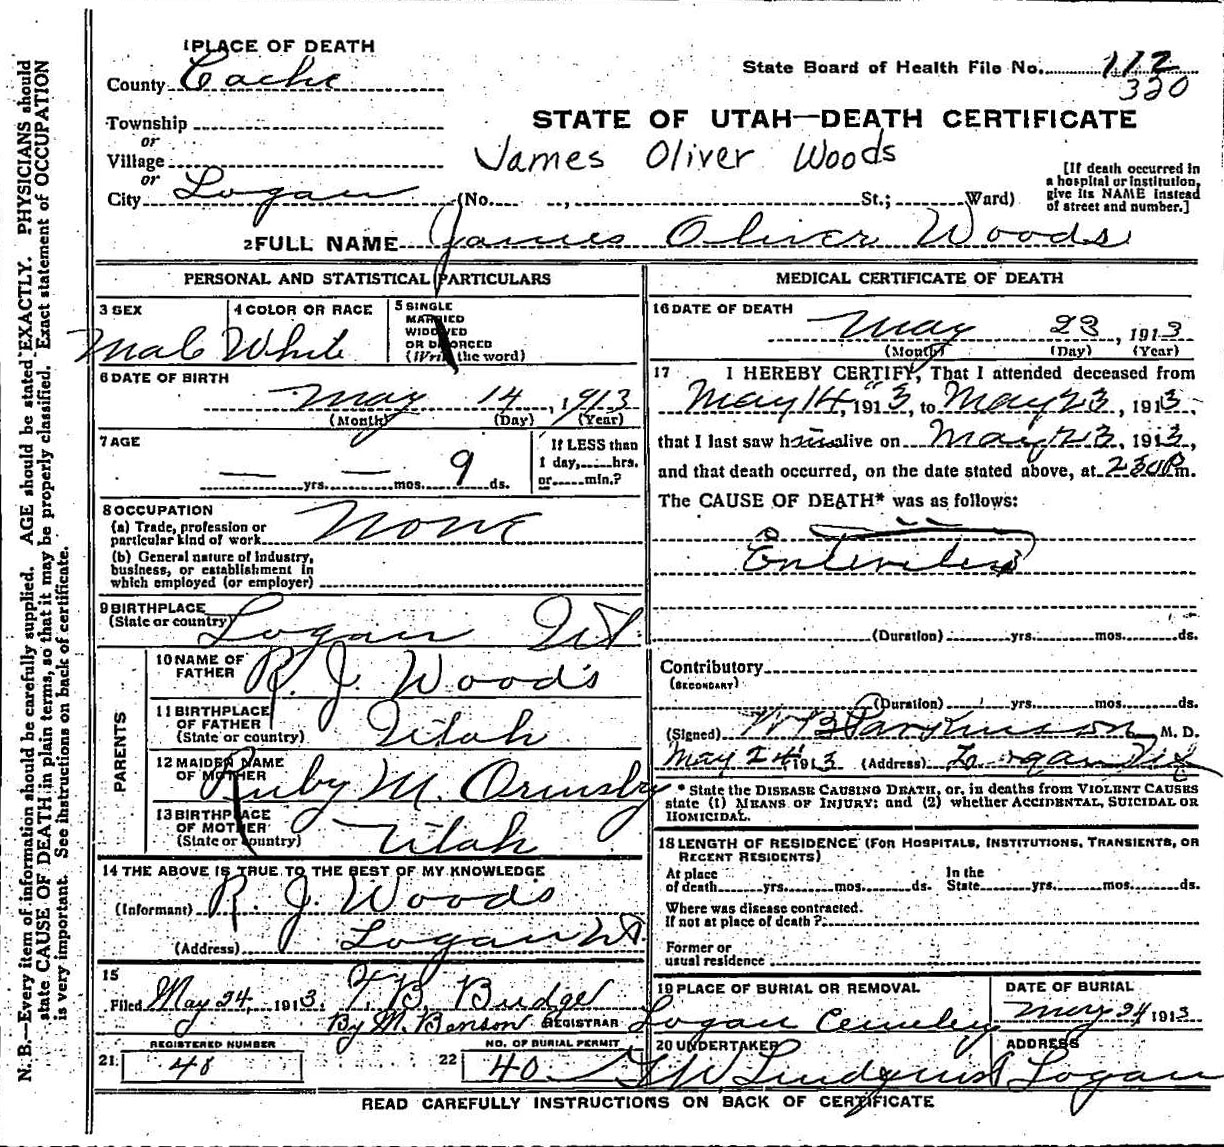 1 PLACE OF DEATH
County Cache
State Board of Health File No. 112
320
Township
or
Village
or
City Logan (No. , St.; Ward)
STATE OF UTAH—DEATH CERTIFICATE
James Oliver Woods
[If death occurred in
a hospital or institution,
give its NAME instead
of street and number.]
2 FULL NAME James Oliver Woods
PERSONAL AND STATISTICAL PARTICULARS
3 SEX
Male
4 COLOR OR RACE
White
5 SINGLE
MARRIED
WIDOWED
OR DIVORCED
(Write the word)
6 DATE OF BIRTH
May 14, 1913
(Month) (Day) (Year)
7 AGE
— yrs. — mos. 9 ds.
If LESS than
1 day, hrs.
or min.?
8 OCCUPATION
(a) Trade, profession or
particular kind of work None
(b) General nature of industry,
business, or establishment in
which employed (or employer)
9 BIRTHPLACE
(State or country) Logan Ut.
PARENTS
10 NAME OF
FATHER R. J. Woods
11 BIRTHPLACE
OF FATHER
(State or country) Utah
12 MAIDEN NAME
OF MOTHER Ruby M. Ormsby
13 BIRTHPLACE
OF MOTHER
(State or country) Utah
14 THE ABOVE IS TRUE TO THE BEST OF MY KNOWLEDGE
(Informant) R. J. Woods
(Address) Logan Ut.
15
Filed May 24, 1913. T. B. Budge
By M. Benson REGISTRAR
REGISTERED NUMBER
21 48
NO. OF BURIAL PERMIT
22 40
MEDICAL CERTIFICATE OF DEATH
16 DATE OF DEATH
May 23, 1913
(Month) (Day) (Year)
17 I HEREBY CERTIFY, That I attended deceased from
May 14, 1913, to May 23, 1913,
that I last saw him alive on May 23, 1913,
and that death occurred, on the date stated above, at 2 30 P m.
The CAUSE OF DEATH* was as follows:
(Duration) yrs. mos. ds.
Contributory
(SECONDARY)
(Duration) yrs. mos. ds.
(Signed) W B Parkinson M. D.
May 24, 1913 (Address) Logan Ut
* State the DISEASE CAUSING DEATH, or, in deaths from VIOLENT CAUSES
state (1) MEANS OF INJURY; and (2) whether ACCIDENTAL, SUICIDAL OR
HOMICIDAL.
18 LENGTH OF RESIDENCE (FOR HOSPITALS, INSTITUTIONS, TRANSIENTS, OR
RECENT RESIDENTS)
At place
of death yrs. mos. ds.
In the
State yrs. mos. ds.
Where was disease contracted.
If not at place of death?
Former or
usual residence
19 PLACE OF BURIAL OR REMOVAL
Logan Cemetery
DATE OF BURIAL
May 24 1913
20 UNDERTAKER
Lindquist
ADDRESS
Logan
READ CAREFULLY INSTRUCTIONS ON BACK OF CERTIFICATE
N. B.—Every item of information should be carefully supplied. AGE should be stated EXACTLY. PHYSICIANS should
state CAUSE OF DEATH in plain terms, so that it may be properly classified. Exact statement of OCCUPATION
is very important. See instructions on back of certificate.